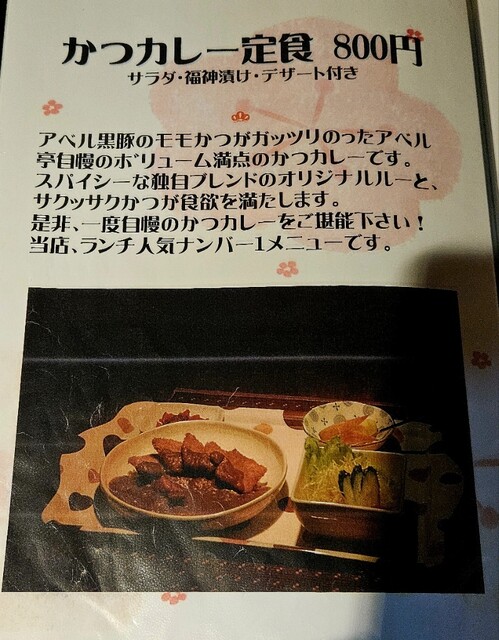 かつカレー定食 800円
サラダ・福神漬け・デザート付き
アベル黒豚のモモかつがガッツリのったアベル
亭自慢のボリューム満点のかつカレーです。
スパイシーな独自ブレンドのオリジナルルーと、
サクッサクかつが食欲を満たします。
是非、一度自慢のかつカレーをご堪能下さい！
当店、ランチ人気ナンバー1メニューです。